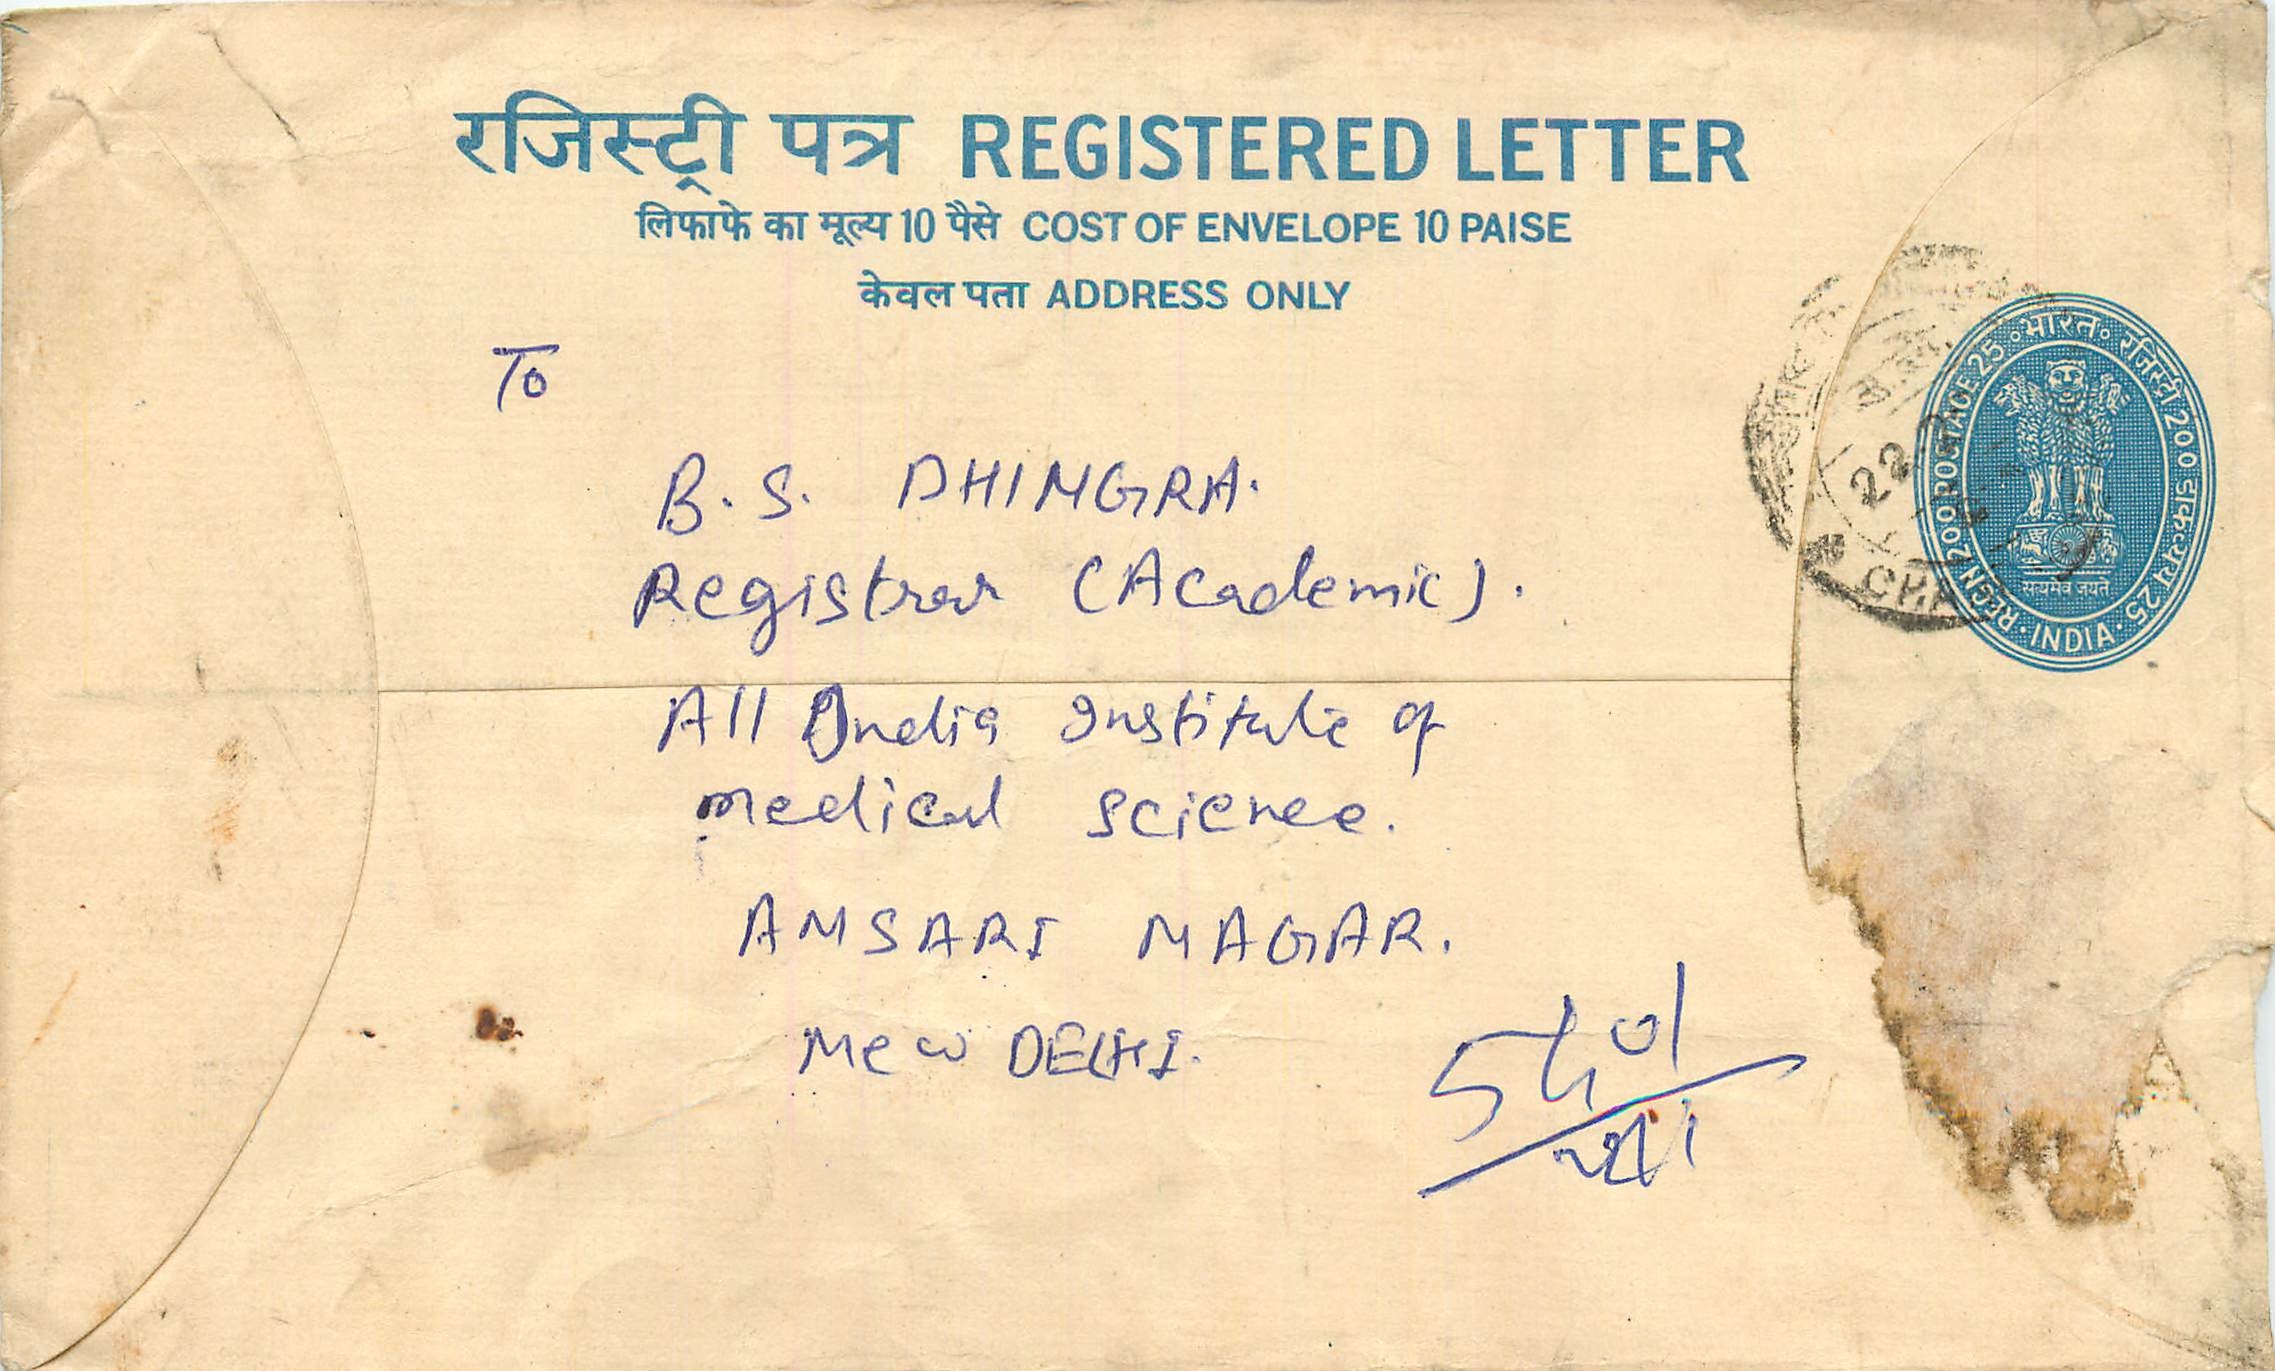 रजिस्ट्री पत्र REGISTERED LETTER
लिफाफे का मूल्य 10 पैसे COST OF ENVELOPE 10 PAISE
केवल पता ADDRESS ONLY
भारत रजिस्ट्री 200 डाकव्यय 25
REGN 200 POSTAGE 25
INDIA
सत्यमेव जयते
22
To
B.S. DHINGRA.
Registrar (Academic).
All India Institute of
medical science.
ANSARI NAGAR.
New DELHI.